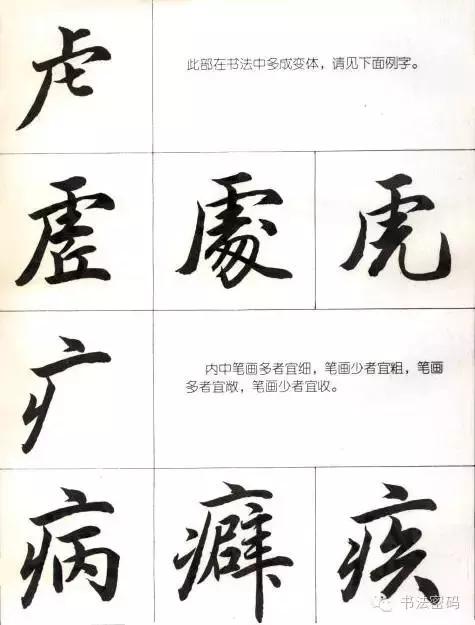 虍
此部在书法中多成变体，请见下面例字。
虚 處 虎
疒
内中笔画多者宜细，笔画少者宜粗，笔画
多者宜敞，笔画少者宜收。
病 癖 疾
书法密码